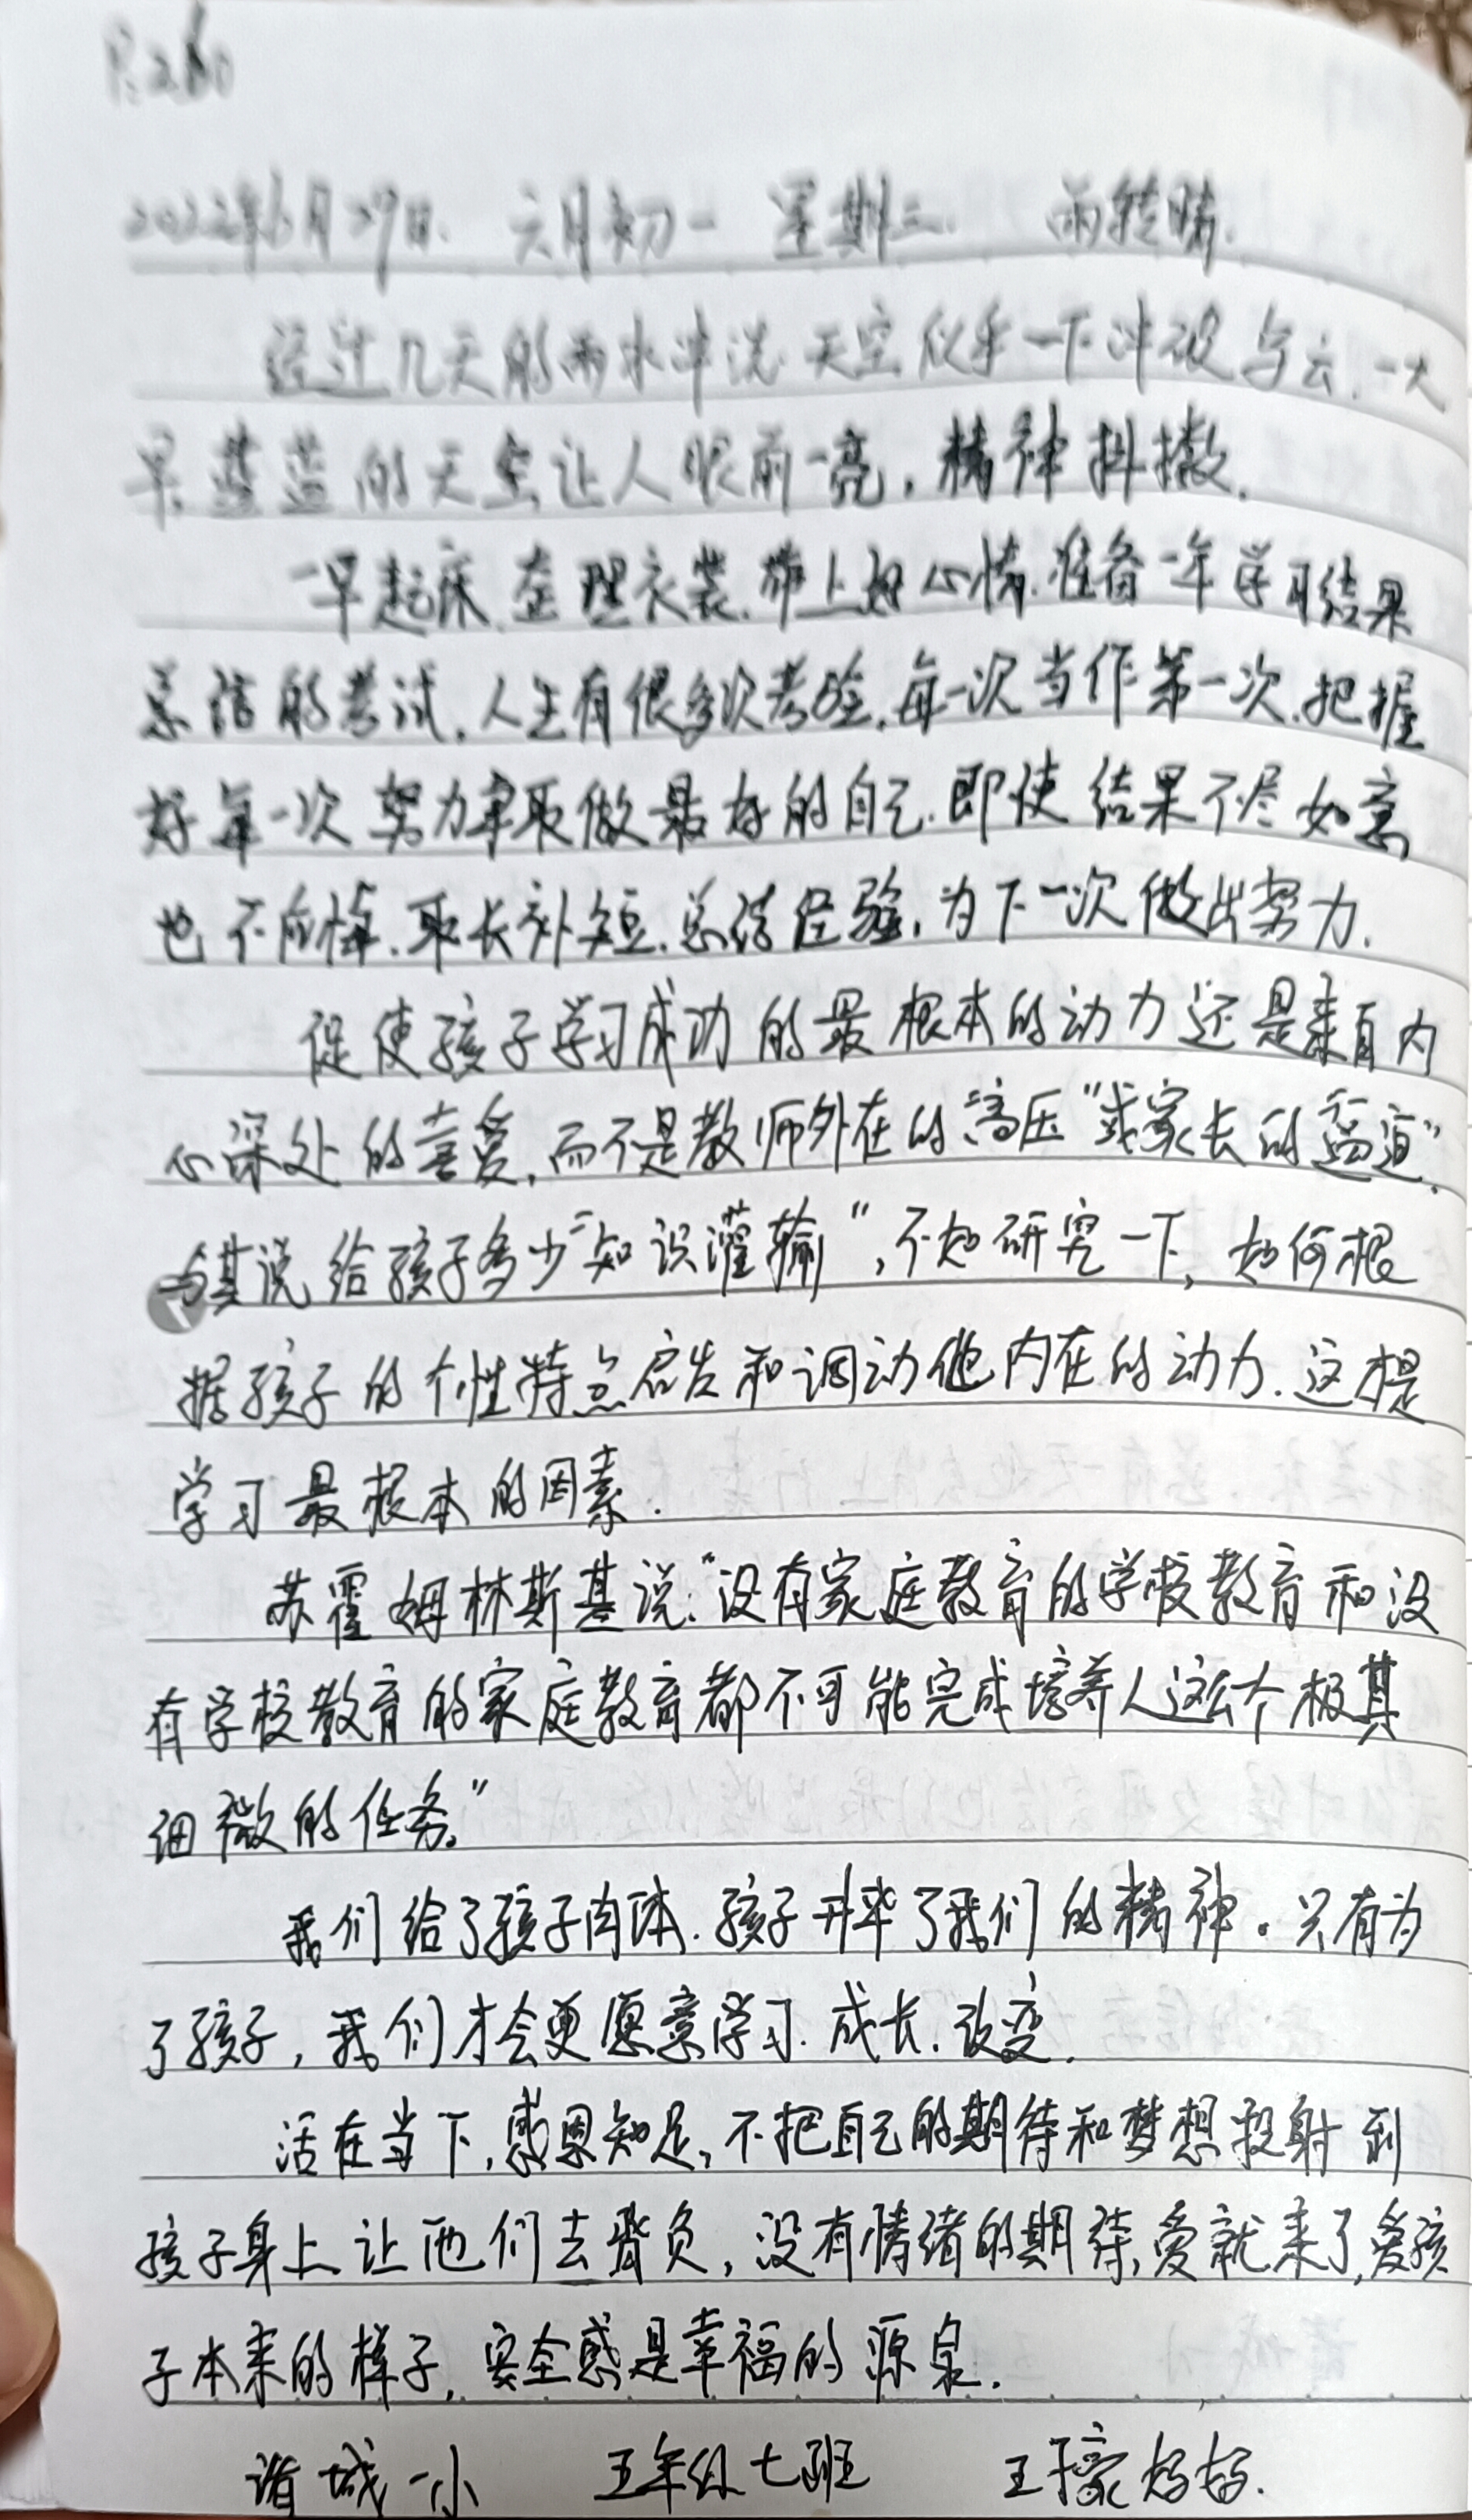 P.260
2022年6月29日. 六月初一 星期三. 雨转晴.
经过几天的雨水冲洗.天空似乎一下冲没乌云.一大
早.蓝蓝的天空让人眼前一亮,精神抖擞.
一早起床.整理衣装.带上好心情.准备一年学习结果
总结的考试.人生有很多次考验.每一次当作第一次.把握
好每一次努力争取做最好的自己.即使结果不尽如意
也不后悔.取长补短.总结经验,为下一次做出努力.
促使孩子学习成功的最根本的动力还是来自内
心深处的喜爱,而不是教师外在的"高压"或家长的"逼迫".
与其说给孩子多少"知识灌输",不如研究一下,如何根
据孩子的个性特点启发和调动他内在的动力.这才是
学习最根本的因素.
苏霍姆林斯基说:"没有家庭教育的学校教育和没
有学校教育的家庭教育都不可能完成培养人这么个极其
细微的任务。"
我们给了孩子肉体.孩子升华了我们的精神。只有为
了孩子,我们才会更愿意学习.成长.改变.
活在当下,感恩知足,不把自己的期待和梦想投射到
孩子身上让他们去背负,没有情绪的期待,爱就来了,爱孩
子本来的样子,安全感是幸福的源泉.
诸城一小 五年级七班 王子豪妈妈.